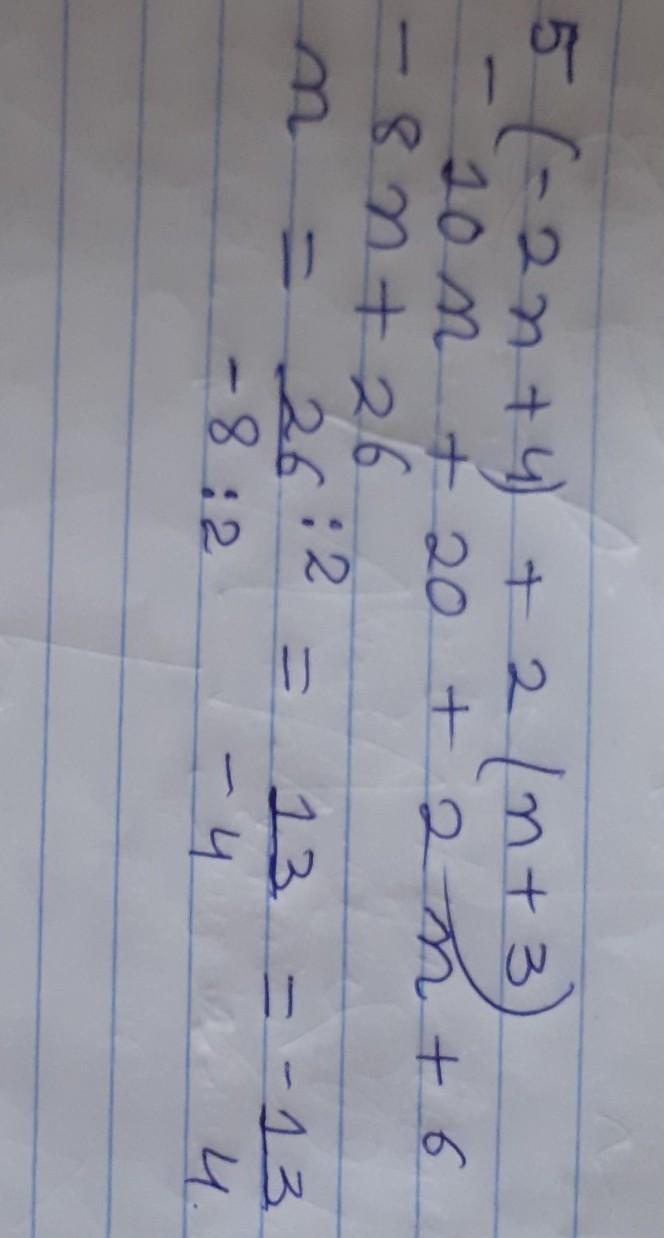 5(-2n+4) + 2(n+3)
-10n + 20 + 2n + 6
-8n + 26
n = 26:2/-8:2 = 13/-4 = -13/4